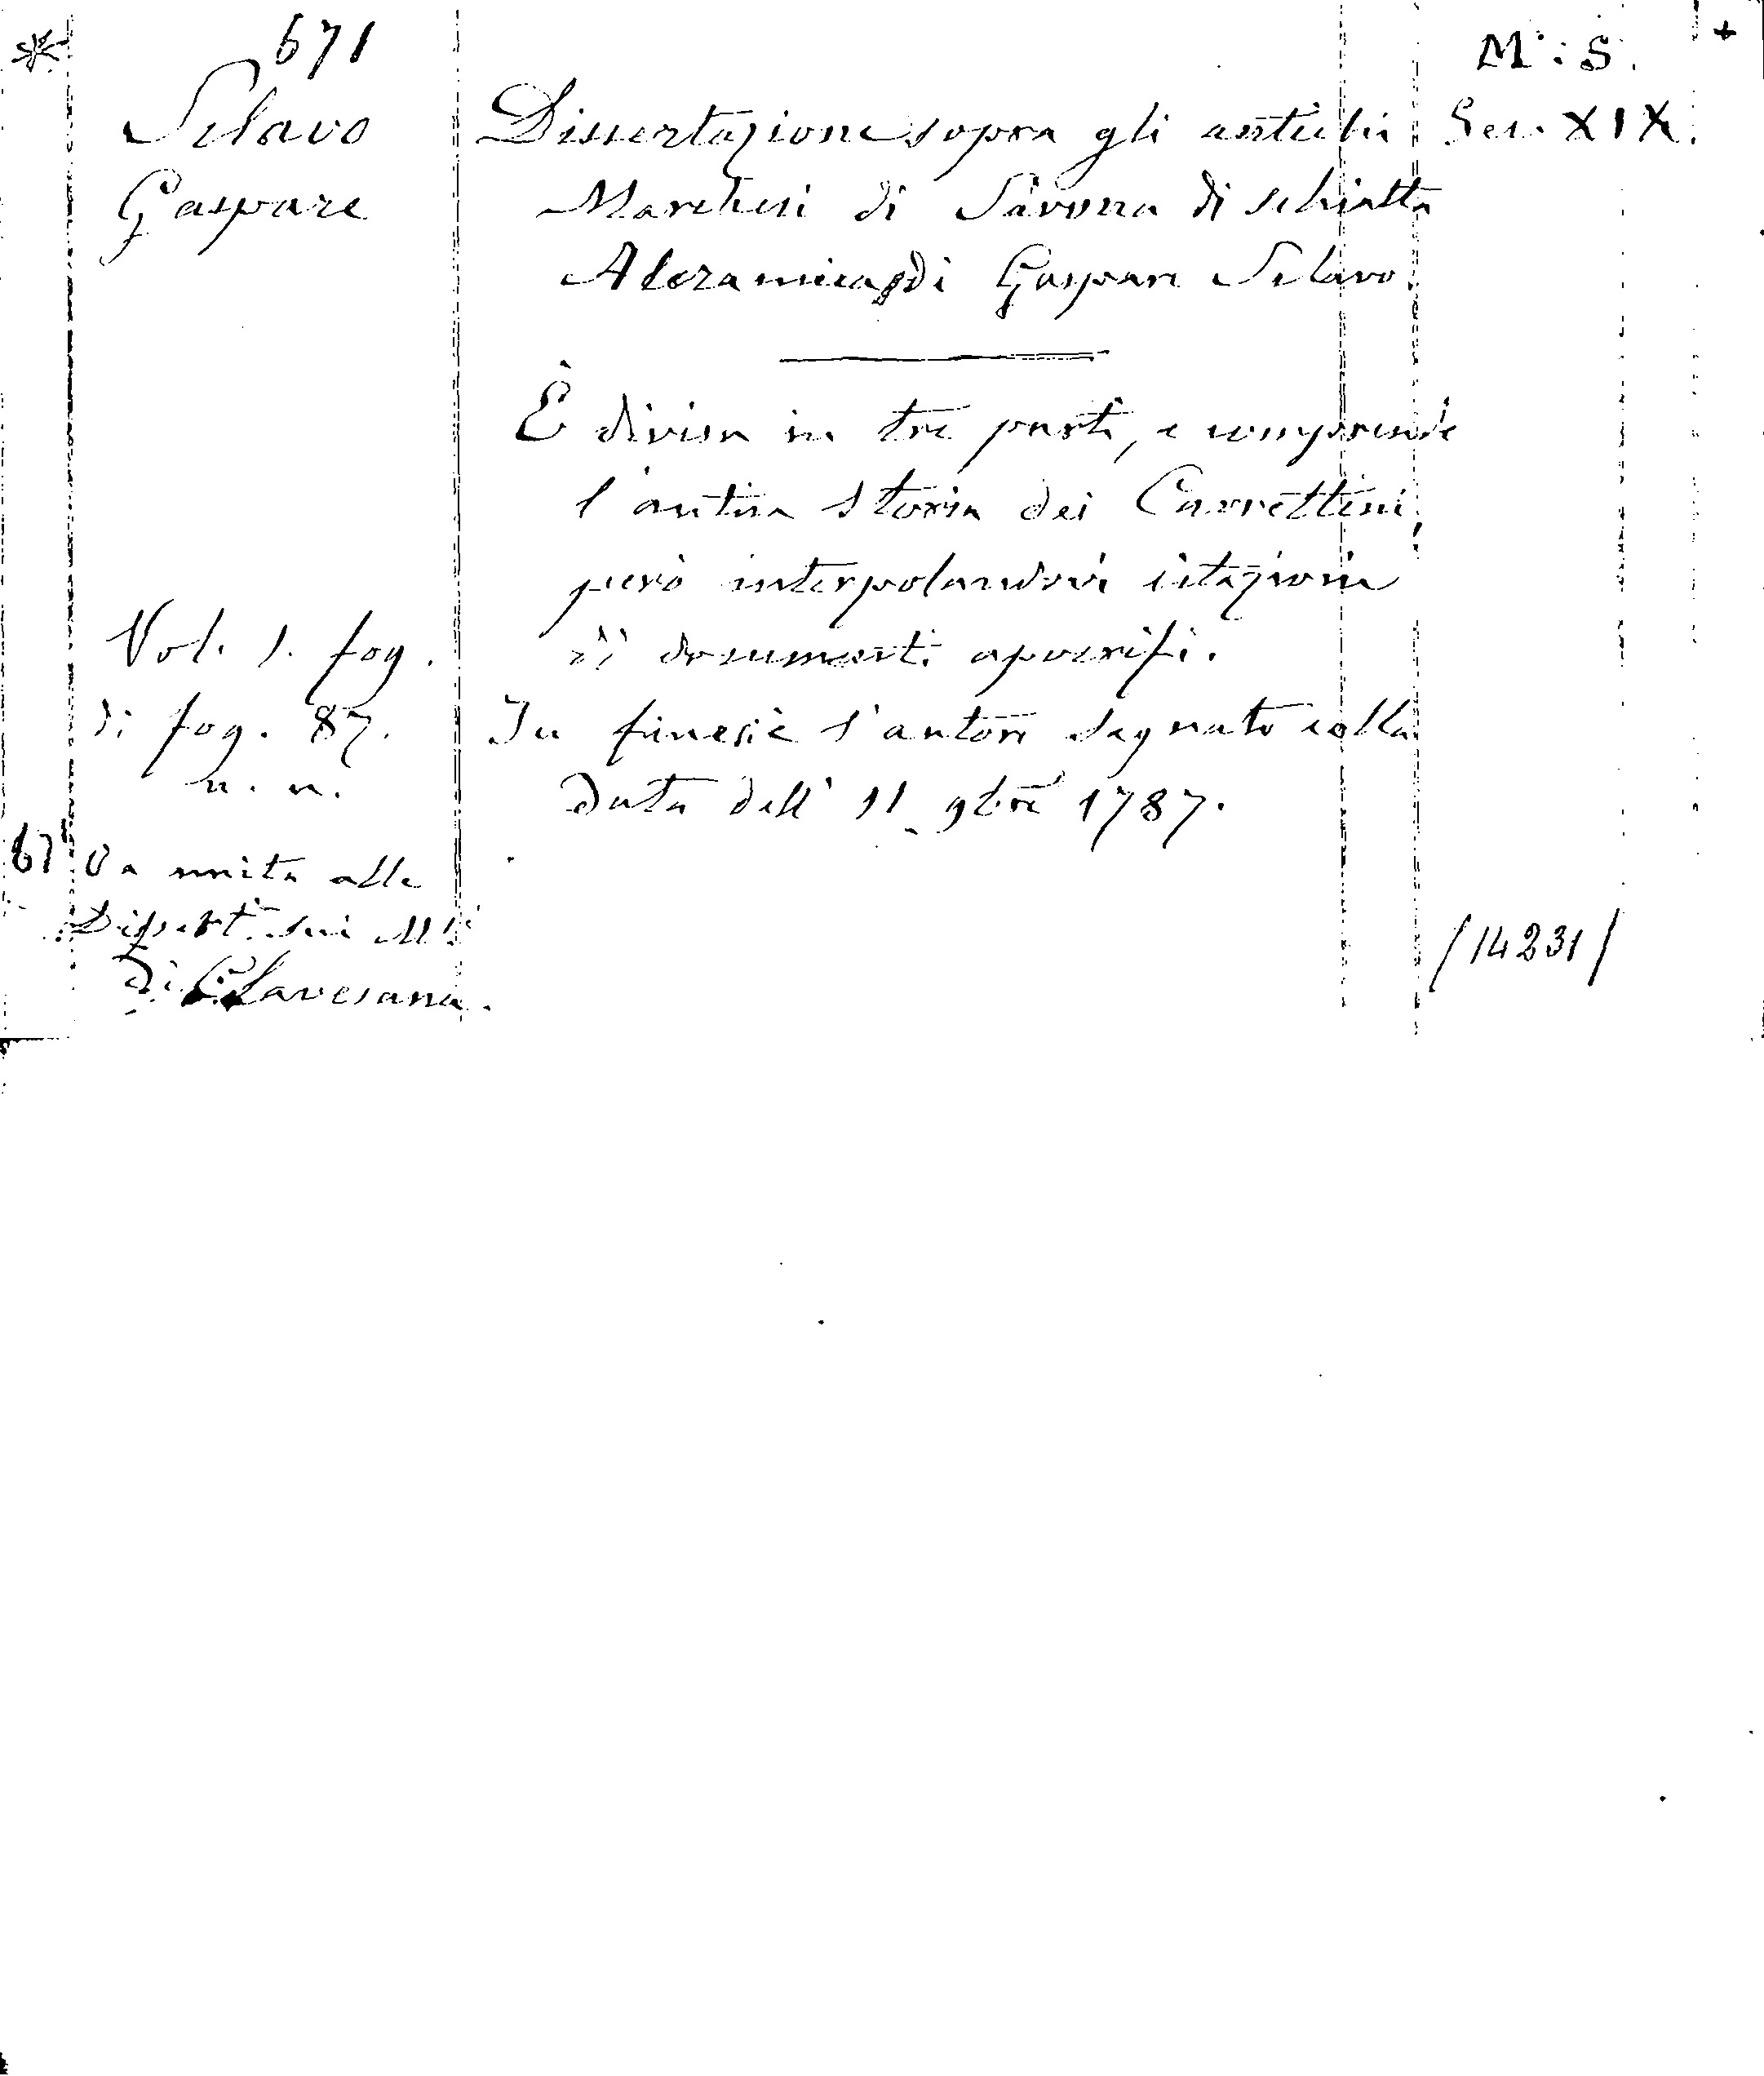 671
Sclavo
Gaspare
Dissertazione sopra gli antichi
Marchesi di Savona di schiatta
Aleramica, di Gaspare Sclavo.
È divisa in tre parti, e comprende
l'antica storia dei Carrettini,
però interpolandovi citazioni
di documenti apocrifi.
In fine si è l'autore segnato colla
data dell' 11 9bre 1787.
Vol. 1. fog.
di fog. 87.
n. n.
Va unita alle
Dissert. sui M.si
di Clavesana.
M.: S.
Sec. XIX.
/14231/